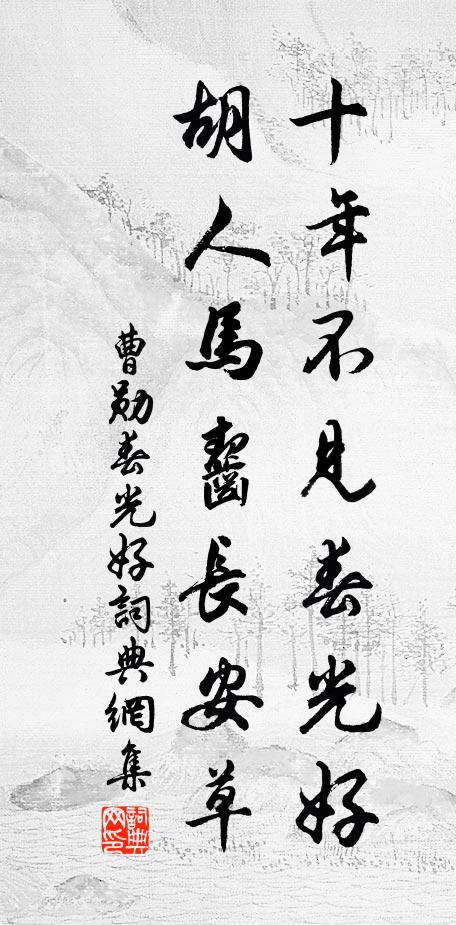 十年不見春光好
胡人馬齧長安草
曹勛春光好詞典網集
詞典网印